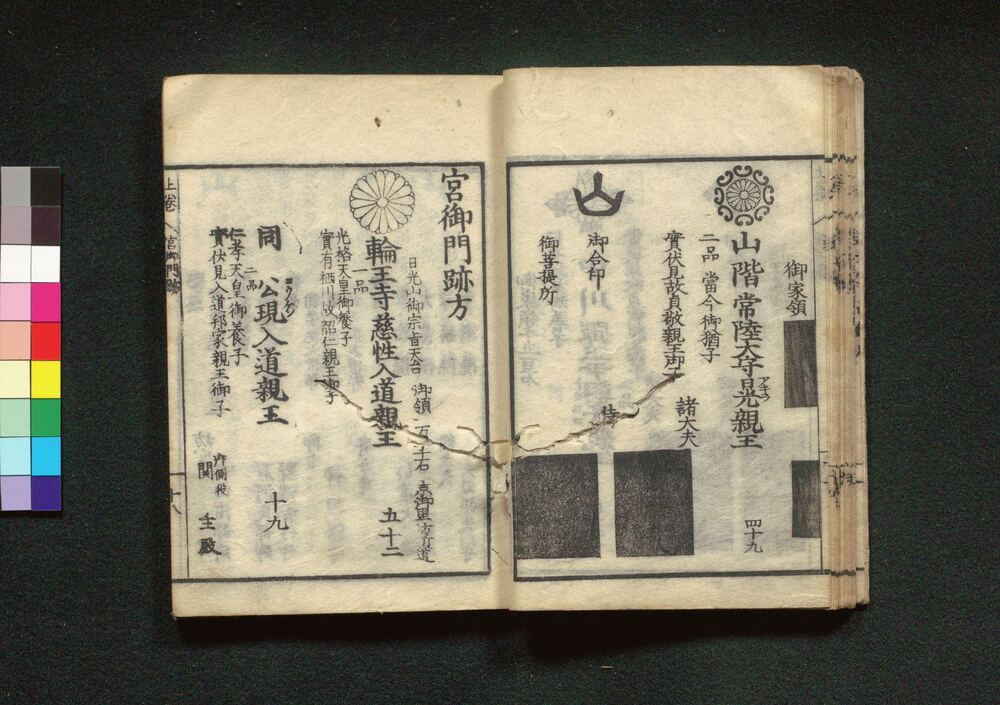 御家領
山階常陸大守晃親王 四十九
アキラ
二品 當今御猶子
實伏見故貞敬親王御子
諸大夫
御合印
侍
御菩提所
宮御門跡方
日光山御宗旨天台 御領一万三千石 京御里方有道
輪王寺慈性入道親王 五十二
一品
光格天皇御養子
實有栖川故韶仁親王御子
同 公現入道親王 十九
コウゲン
二品
仁孝天皇御養子
實伏見入道邦家親王御子
御側役
関 主殿
上巻 宮御門跡 十八